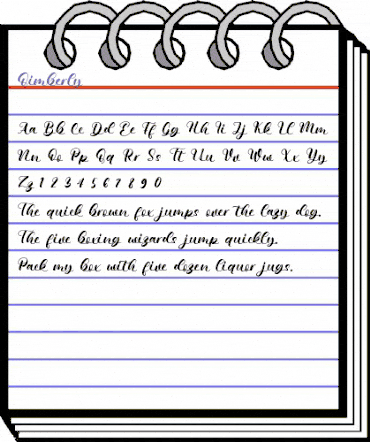 Qimberly
Aa Bb Cc Dd Ee Ff Gg Hh Ii Jj Kk Ll Mm
Nn Oo Pp Qq Rr Ss Tt Uu Vv Ww Xx Yy
Zz 1 2 3 4 5 6 7 8 9 0
The quick brown fox jumps over the lazy dog.
The five boxing wizards jump quickly.
Pack my box with five dozen liquor jugs.